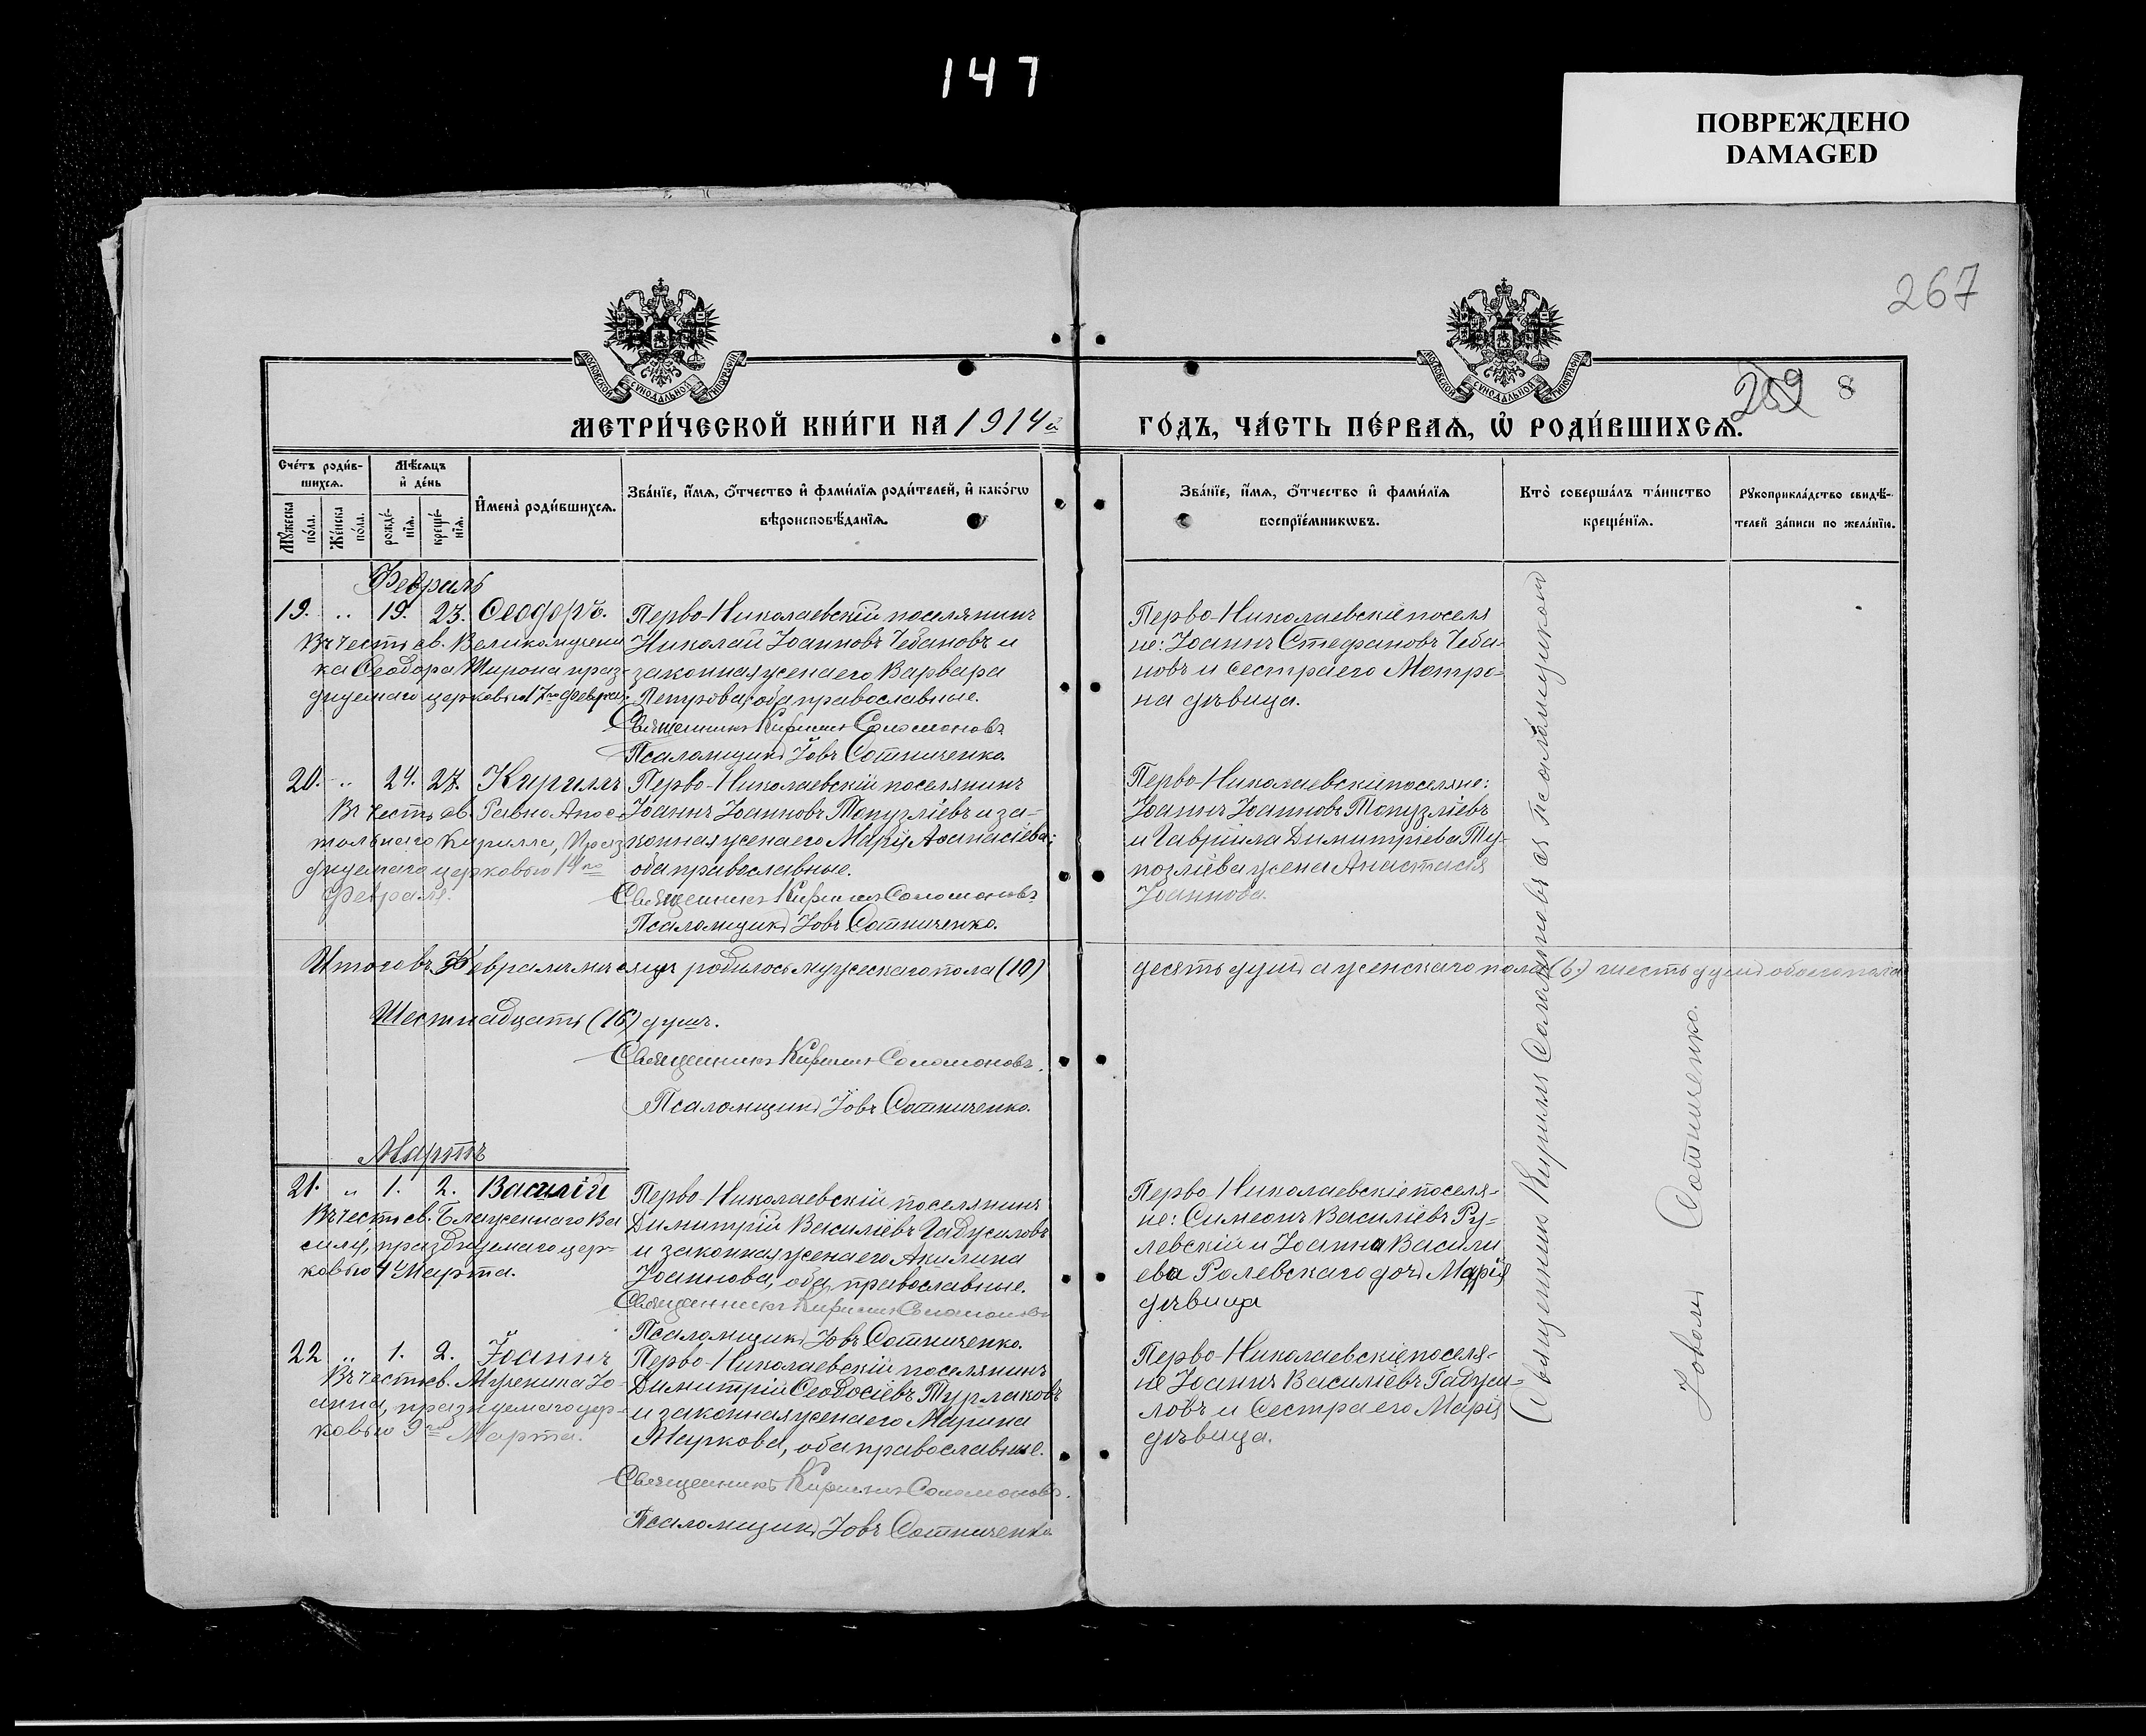 147
ПОВРЕЖДЕНО
DAMAGED
267
МОСКОВСКОЙ СУНОДАЛЬНОЙ ТИПОГРАФІИ
МОСКОВСКОЙ СУНОДАЛЬНОЙ ТИПОГРАФІИ
259 8
МЕТРИ́ЧЕСКОЙ КНИ́ГИ НА 1914й
ГО́ДЪ, ЧА́СТЬ ПЕ́РВАѦ, Ѡ҆ РОДИ́ВШИХСѦ.
Сче́тъ роди́вшихсѧ.
Мꙋ́жеска по́ла.
Же́нска по́ла.
Мѣ́сѧцъ и҆ де́нь
рожде́нїѧ.
креще́нїѧ.
И҆мена̀ роди́вшихсѧ.
Зва́нїе, и҆́мѧ, ѻ҆́тчество и҆ фами́лїѧ роди́телей, и҆ како́гѡ
вѣроисповѣ́данїѧ.
Зва́нїе, и҆́мѧ, ѻ҆́тчество и҆ фами́лїѧ
воспрїе́мникѡвъ.
Кто̀ соверша́лъ та́инство
креще́нїѧ.
Рꙋкоприкла́дство свидѣ́-
телей за́писи по жела́нїю.
Февраль
19. „ 19. 23. Ѳеодоръ.
Въ честь св. Великомучени
ка Ѳеодора Тирона праз-
днуемаго церковью 17го Февра.
Перво-Николаевскій поселянинъ
Николай Іоанновъ Чебановъ и
законная жена его Варвара
Петрова, оба православные.
Священникъ Кириллъ Соломоновъ
Псаломщикъ Іовъ Сотниченко.
Перво-Николаевскіе поселя
не: Іоаннъ Стефановъ Чеба-
новъ и сестра его Матро-
на дѣвица.
20. „ 24. 27. Кириллъ
Въ честь св. Равно Апос-
тольнаго Кирилла, Праз
днуемаго церковью 14го
Февраля.
Перво-Николаевскій поселянинъ
Іоаннъ Іоанновъ Топузліевъ и за-
конная жена его Марія Аѳанасіева;
оба православные.
Священникъ Кириллъ Соломоновъ
Псаломщикъ Іовъ Сотниченко.
Перво-Николаевскіе поселяне:
Іоаннъ Іоанновъ Топузліевъ
и Гавріила Димитріева Ту-
позліева жена Анастасія
Іоаннова.
Итого въ Февралѣ мѣсяцѣ родилось мужескаго пола (10)
десять душъ а женскаго пола (6.) шесть душъ обоего пола
Шестнадцать (16) душъ.
Священникъ Кириллъ Соломоновъ.
Псаломщикъ Іовъ Сотниченко.
Мартъ
21. „ 1. 2. Василій
Въ честь св. Блаженнаго Ва
силія, празднуемаго цер-
ковью 4 Марта.
Перво-Николаевскій поселянинъ
Димитрій Василіевъ Гаджиловъ
и законная жена его Акилина
Іоаннова, оба православные.
Священникъ Кириллъ Соломоновъ
Псаломщикъ Іовъ Сотниченко.
Перво-Николаевскіе поселя-
не: Симеонъ Василіевъ Ру-
левскій и Іоанна Васили
ева Ролевскаго дочь Марія
дѣвица
22 „ 1. 2. Іоаннъ
Въ честь св. Мученика Іо-
анна, празднуемаго цер-
ковью 9го Марта.
Перво-Николаевскій поселянинъ
Димитрій Ѳеодосіевъ Турлаковъ
и законная жена его Марина
Маркова, оба православные.
Священникъ Кириллъ Соломоновъ.
Псаломщикъ Іовъ Сотниченко
Перво-Николаевскіе поселя-
не Іоаннъ Василіевъ Гаджи-
ловъ и Сестра его Марія
дѣвица.
Священникъ Кириллъ Соломоновъ съ псаломщикомъ
Іовомъ Сотниченко.